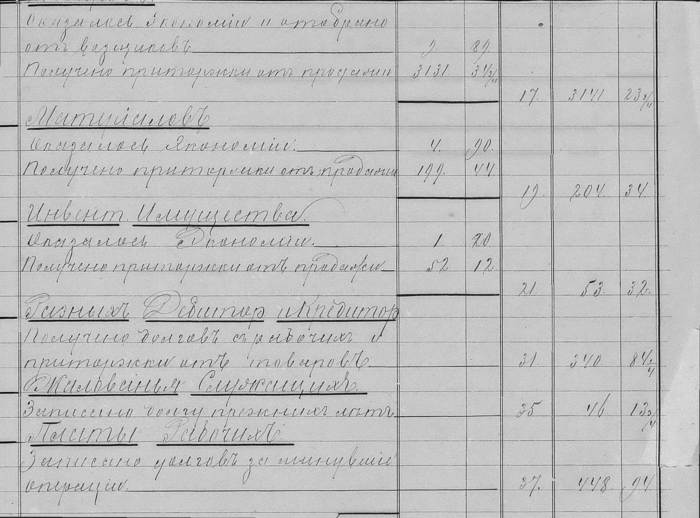 Оказалось Экономіи и отобрано
отъ возчиковъ 9 89
Получено приторжки отъ продажи 3131 34 2/4
17 3141 23 2/4
Матеріаловъ
Оказалось Экономіи 4. 90.
Получено приторжки отъ продажи 199. 44
19. 204. 34.
Инвент. Имущества.
Оказалось Экономіи. 1 20
Получено приторжки отъ продажи 52 12
21. 53. 32.
Разныхъ Дебитор и Кредитор
Получено долговъ съ рабочихъ и
приторжки отъ товаровъ 31 340
Жалованья Служащихъ
Записано долгу прежнихъ лѣтъ 35 46
Платы Рабочихъ
Записано долговъ за минувшіе
операціи. 37. 448 94